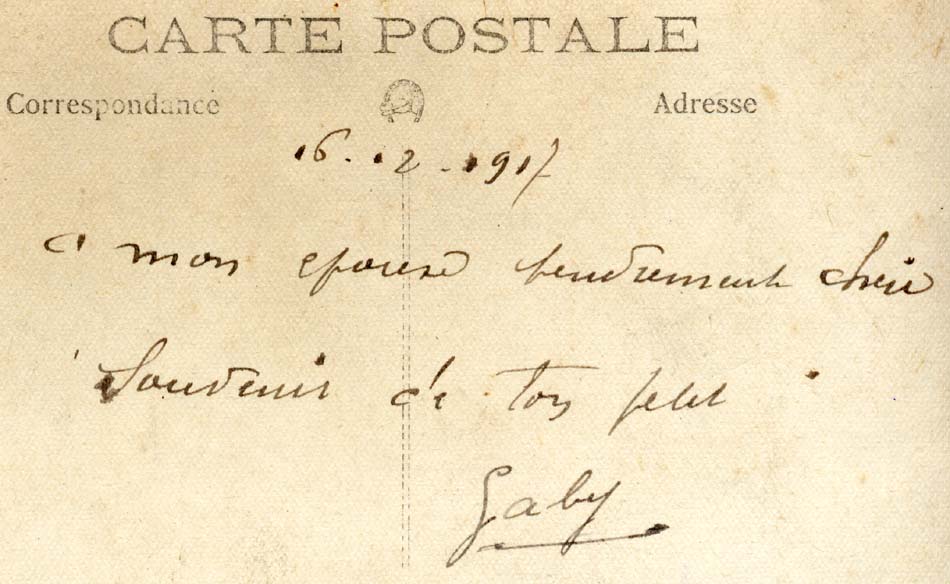 CARTE POSTALE
Correspondance
Adresse
16. 12. 1917
a mon epouse tendrement cherie
Souvenir de ton petit
Gaby